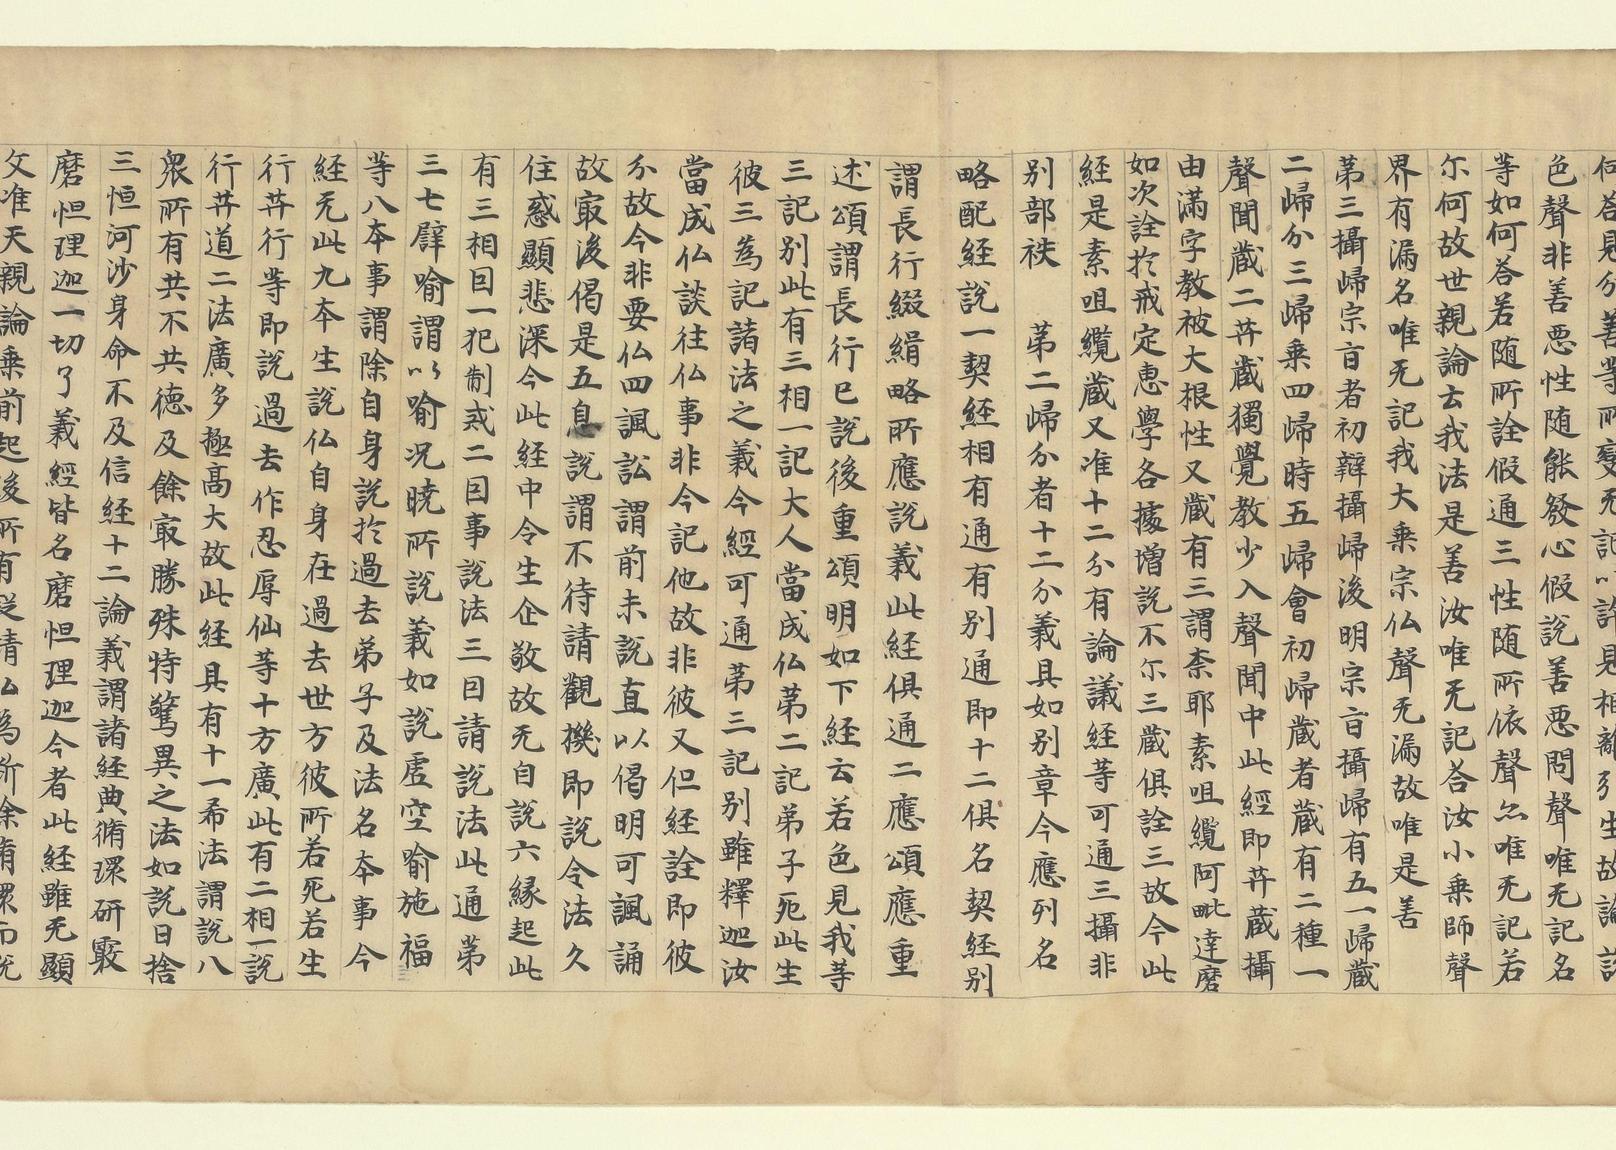 何答見分善等所變无記以許見相離引生故論説
色聲非善惡性随能發心假説善惡問聲唯无記名
等如何答若随所詮假通三性随所依聲亦唯无記若
尓何故世親論云我法是善汝唯无記答汝小乗師聲
界有漏名唯无記我大乗宗仏聲无漏故唯是善
第三攝歸宗盲者初辯攝歸後明宗盲攝歸有五一歸蔵
二歸分三歸乗四歸時五歸會初歸蔵者蔵有二種一
聲聞蔵二菩蔵獨覺教少入聲聞中此經即菩蔵攝
由滿字教被大根性又蔵有三謂柰耶素呾纜阿毗達磨
如次詮於戒定惠學各據増説不尓三蔵俱詮三故今此
經是素呾纜蔵又准十二分有論議經等可通三攝非
别部袟　第二歸分者十二分義具如别章今應列名
略配経説一契経相有通有别通即十二俱名契経别
謂長行綴緝略所應説義此經俱通二應頌應重
述頌謂長行已説後重頌明如下經云若色見我等
三記别此有三相一記大人當成仏第二記弟子死此生
彼三為記諸法之義今經可通第三記别雖釋迦汝
當成仏談往仏事非今記他故非彼又但経詮即彼
分故今非要仏四諷訟謂前未説直以偈明可諷誦
故冣後偈是五息説謂不待請觀機即説令法久
住惑顯悲深今此経中令生企敬故无自説六縁起此
有三相因一犯制戎二因事説法三因請説法此通第
三七辟喻謂以喻况曉所説義如説虚空喻施福
等八本事謂除自身説於過去弟子及法名本事今
経无此九本生説仏自身在過去世方彼所若死若生
行菩行等即説過去作忍辱仙等十方廣此有二相一説
行菩道二法廣多極高大故此経具有十一希法謂説八
衆所有共不共徳及餘冣勝殊特驚異之法如説日捨
三恒河沙身命不及信経十二論義謂諸経典循環研覈
磨怛理迦一切了義經皆名磨怛理迦今者此経雖无顯
文准天親論乗前起後所有疑請仏為所除循環而説